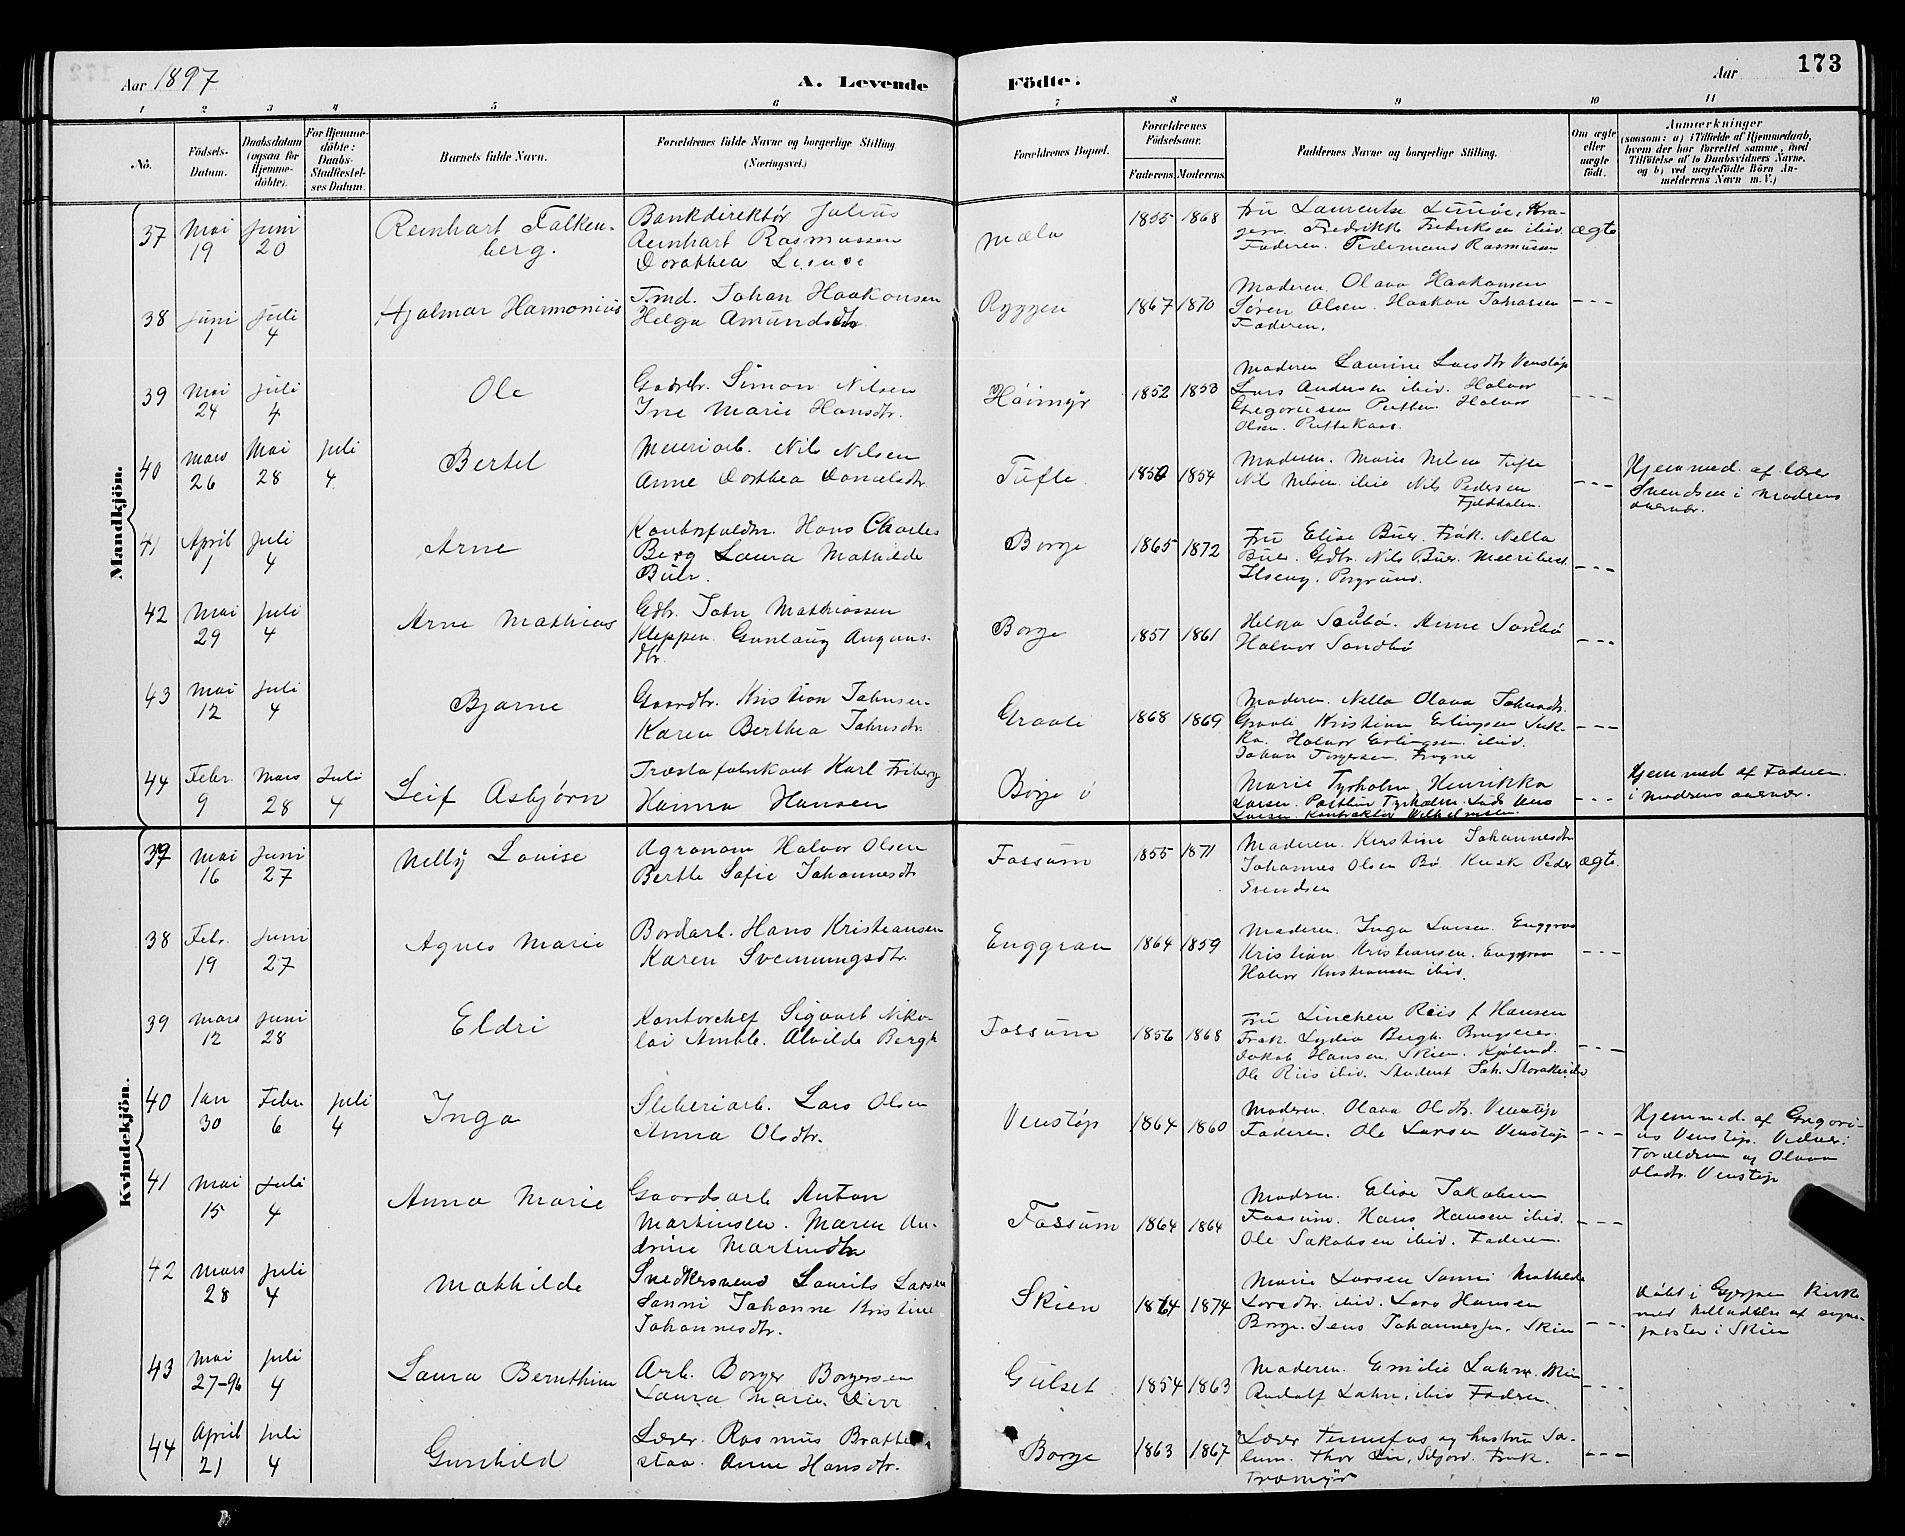 Aar 1897
A. Levende
Födte.
Aar
173
1 2 3 4 5 6 7 8 9 10 11
No.
Födsels-
Datum.
Daabsdatum
(ogsaa for
Hjemme-
döbte).
For Hjemme-
döbte:
Daabs-
Stadfæstel-
ses Datum.
Barnets fulde Navn.
Forældrenes fulde Navne og borgerlige Stilling
(Næringsvei.)
Forældrenes Bopæl.
Forældrenes
Födselsaar.
Faderens.
Moderens.
Faddernes Navne og borgerlige Stilling.
Om ægte
eller
uægte
födt.
Anmærkninger
(saasom: a) i Tilfælde af Hjemmedaab,
hvem der har forrettet samme, med
Tilföielse af to Daabsvidners Navne,
og b) ved uægtefödte Börn An-
melderens Navn m. V.)
Mandkjön.
37
Mai
19
Juni
20
Reinhart Falken-
berg.
Bankdirektör Julius
Reinhart Rasmussen
Dorothea
Mæla
1855 1868
Fru Laurentse Kra-
gerø. Fredrikke Fredriksen ibid.
Faderen. Tidemand Rasmussen
ægte
38
Juni
1
Juli
4
Hjalmar Harmonius
Tmd. Johan Haakonsen
Helga Amundsdtr.
Ryggen
1867 1870
Moderen. Olava Haakonsen
Søren Olsen. Haakon Johansen
Faderen.
---
39
Mai
24
Juli
4
Ole
Gaardbr. Simon Nilsen
Ine Marie Hansdtr.
Høimyr
1852 1853
Moderen Laurine Larsdtr Venstøp
Lars Andersen ibid. Halvor
Gregoriussen Putten. Halvor
Olsen. Puttekaas.
---
40
Mars
26
Mai
28
Juli
4
Bertel
Meieriarb. Nils Nilsen
Anne Dorthea Danielsdtr.
Tufte
1850 1854
Moderen. Marie Nilsen Tufte
Nils Nilsen ibid Nils Pedersen
Fjelddalen.
---
Hjemmed. af lærer
Svendsen i Moderens
overvær.
41
April
1
Juli
4
Arne
Kontorfuldm. Hans Charles
Berg Laura Mathilde
Buer.
Borge
1865 1872
Fru Elise Buer. Frøk. Nella
Buer. Gdbr. Nils Buer. Meieribest.
Ilseng. Porsgrund.
---
42
Mai
29
Juli
4
Arne Mathias
Gdbr. John Mathiassen
Kleppen. Gunlaug Anguns-
dtr.
Borge
1857 1861
Helga Sanbø. Anne Sanbø
Halvor Sandbø
---
43
Mai
12
Juli
4
Bjarne
Gaardbr. Kristian Johnsen
Karen Berthea Johnsdtr.
Graali
1868 1869
Moderen. Nella Olava Johnsdtr.
Graali Kristian Erlingsen
Halvor Erlingsen ibid.
Johan Torgersen. Frogne
---
44
Febr.
9
Mars
28
Juli
4
Leif Asbjørn
Træstofabrikant Karl Friberg
Hanna Hansen
Børge ø
Marie Tyrholm, Henrikka
Larsen. Postbud Tyrholm. Jens
Larsen. Kontraktør Wilhelmsen.
---
Hjemmed af Faderen.
i Moderens overvær.
Kvindekjön.
37
Mai
16
Juni
27
Nelly Louise
Agronom Halvor Olsen
Berthe Sofie Johannesdtr
Fossum
1855 1871
Moderen. Kirstine Johannesdtr
Johannes Olsen Bø Kusk Peder
Svendsen
ægte.
38
Febr.
19
Juni
27
Agnes Marie
Bordarb. Hans Kristiansen
Karen Svennungsdtr.
Enggrav
1864 1859
Moderen. Inga Larsen. Enggrav
Kristian Kristiansen. Enggrav
Halvor Kristiansen ibid.
---
39
Mars
12
Juni
28
Eldri
Kontorchef Sigvart Niko-
lai Amble. Alvilde Bergh
Fossum
1856 1868
Fru Linchen Riis f Hansen
Frøk. Lydia Bergh. Brugseier
Jakob Hansen, Skien. Kjøbmd.
Ole Riis ibid. Student Joh.
---
40
Jan
30
Febr.
6
Juli
4
Inga
Sliberiarb. Lars Olsen
Anna Olsdtr.
Venstøp
1864 1860
Moderen. Olava Olsdtr. Venstøp
Faderen. Ole Larsen Venstøp
---
Hjemmed. af Gregori-
us Venstøp. Vidner:
Forældrene og Olava
Olsdtr. Venstøp
41
Mai
15
Juli
4
Anna Marie
Gaardsarb. Anton
Martinsen. Maren An-
drine Martinsdtr
Fossum
1864 1864
Modren. Elise Jakobsen
Fossum. Hans Hansen ibid.
Ole Jakobsen ibid. Faderen.
---
42
Mars
28
Juli
4
Mathilde
Snedkersvend Laurits Larsen
Sanni Johanne Kristine
Johannesdtr.
Skien
1874 1874
Marie Larsen Sanni Mathilde
Larsdtr. ibid. Lars Hansen
Borge. Jens Johannessen. Skien
---
Døbt i Gjerpen Kirke
med tilladelse af sogne-
prester i Skien
43
Mai
27-96
Juli
4
Laura Bernthine
Arb. Borger Borgersen
Laura Marie
Gulset
1854 1863
Moderen. Emilie Lahn.
Rudolf Lahn, ibid Fadren.
---
44
April
21
Juli
4
Gunhild
Lærer. Rasmus Bratte-
staa. Anne Hansdtr.
Borge
1863 1867
Lærer og hustru So-
lum. Thor Lie, Frøk.
---